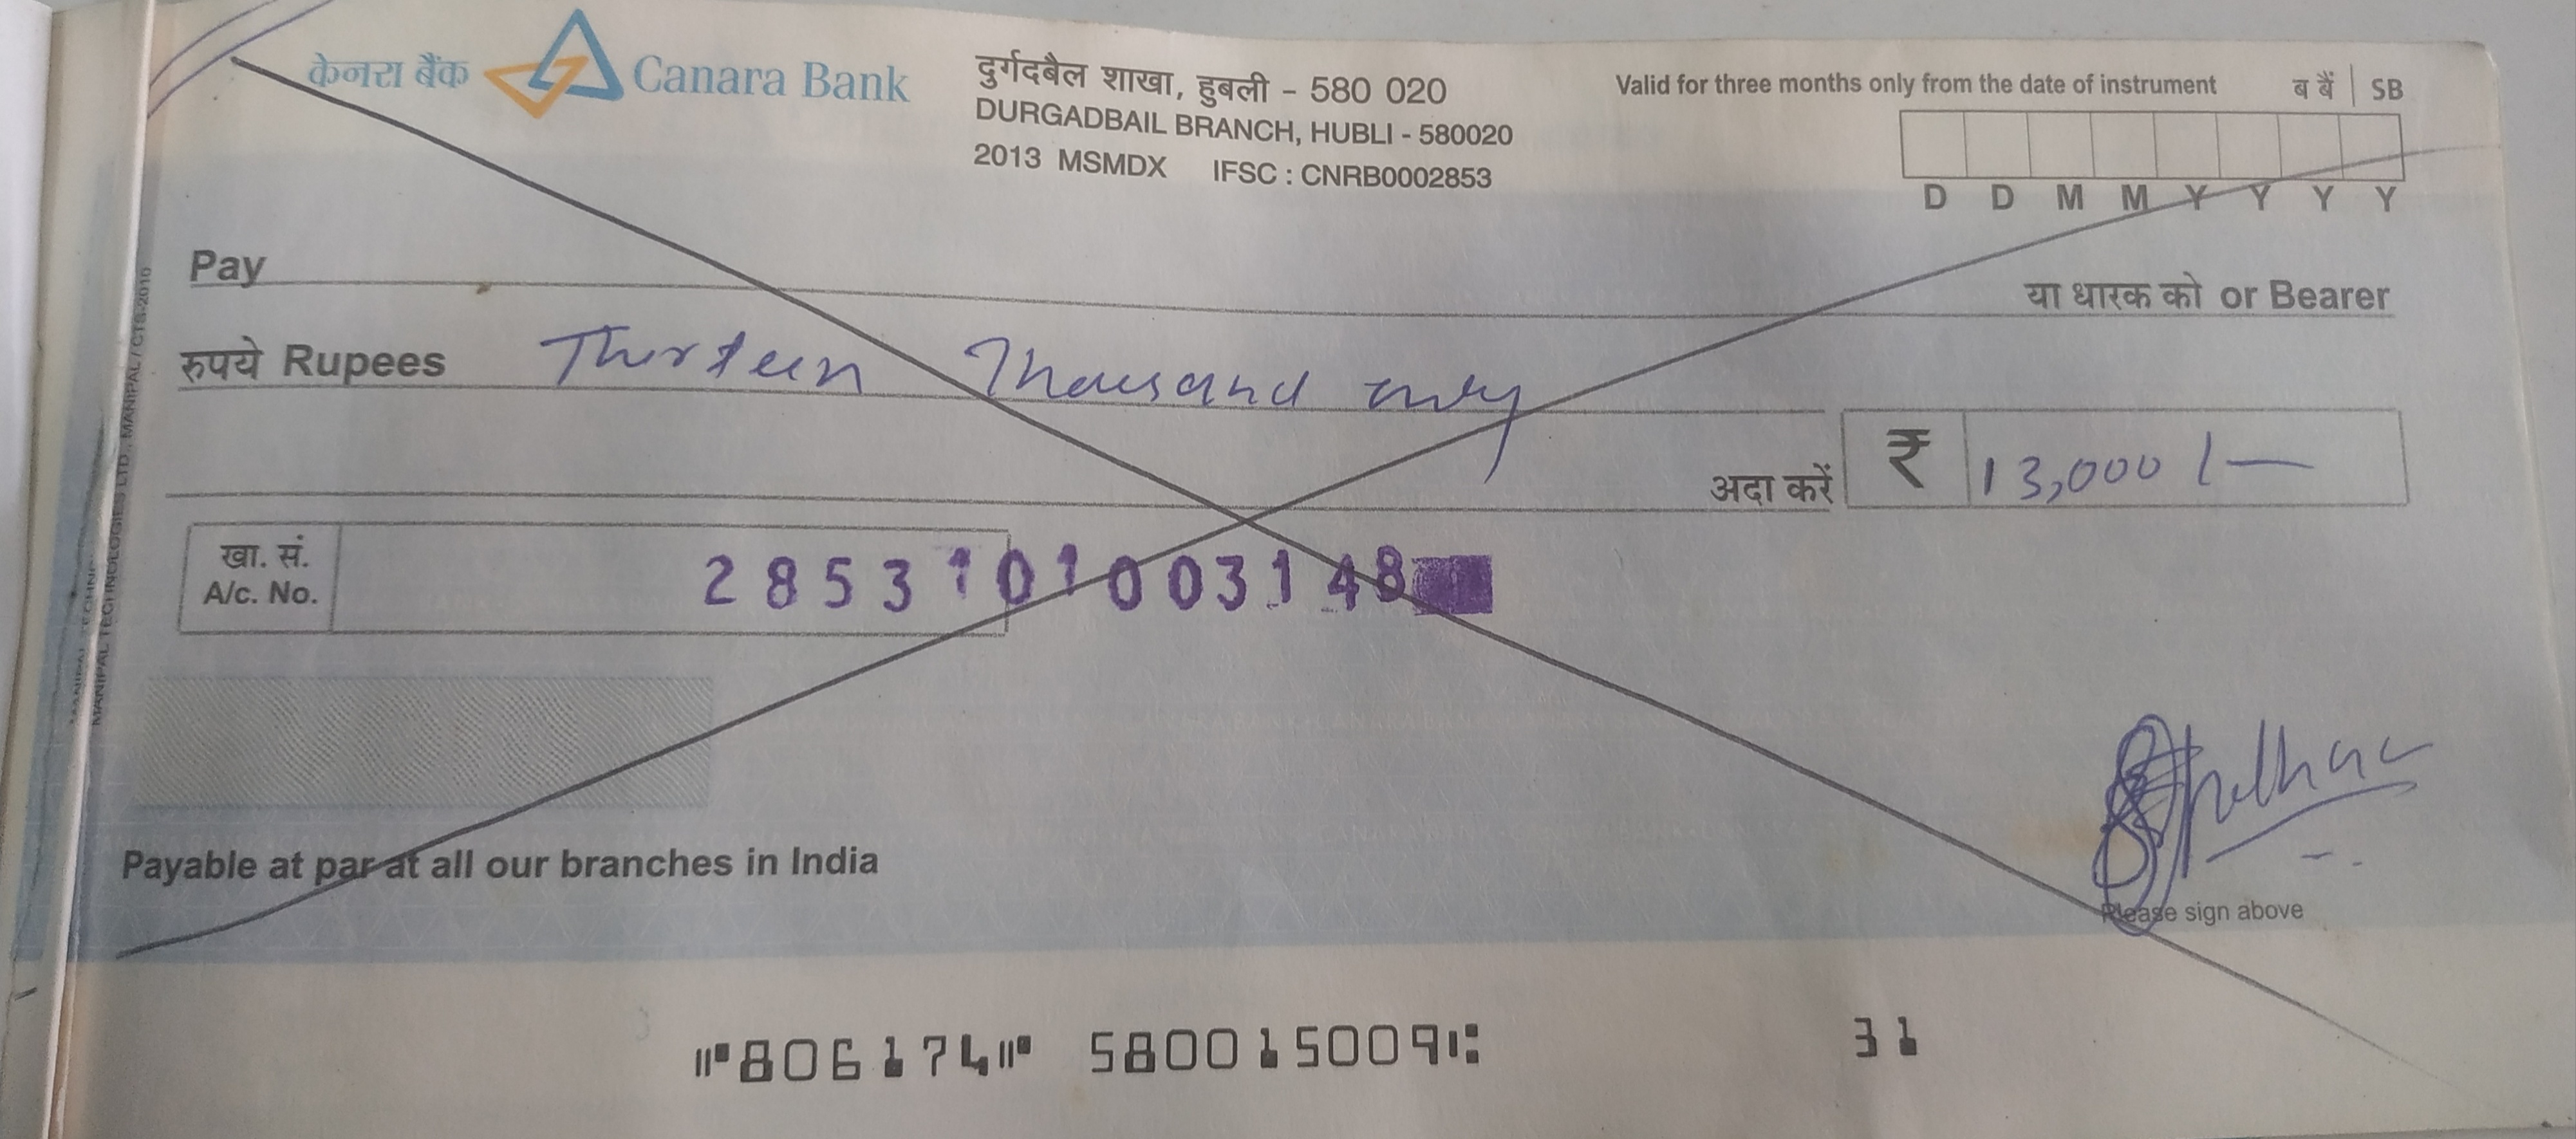 केनरा बैंक Canara Bank
दुर्गदबैल शाखा, हुबली - 580 020
DURGADBAIL BRANCH, HUBLI - 580020
2013 MSMDX IFSC : CNRB0002853
Valid for three months only from the date of instrument
ब बैं | SB
D D M M Y Y Y Y
Pay
या धारक को or Bearer
रुपये Rupees Thirteen Thousand only
अदा करें ₹ 13,000/-
खा. सं.
A/c. No.
2853101003148
MANIPAL TECHNOLOGIES LTD., MANIPAL / CTS-2010
Payable at par at all our branches in India
Please sign above
⑈806174⑈ 580015009⑆ 31